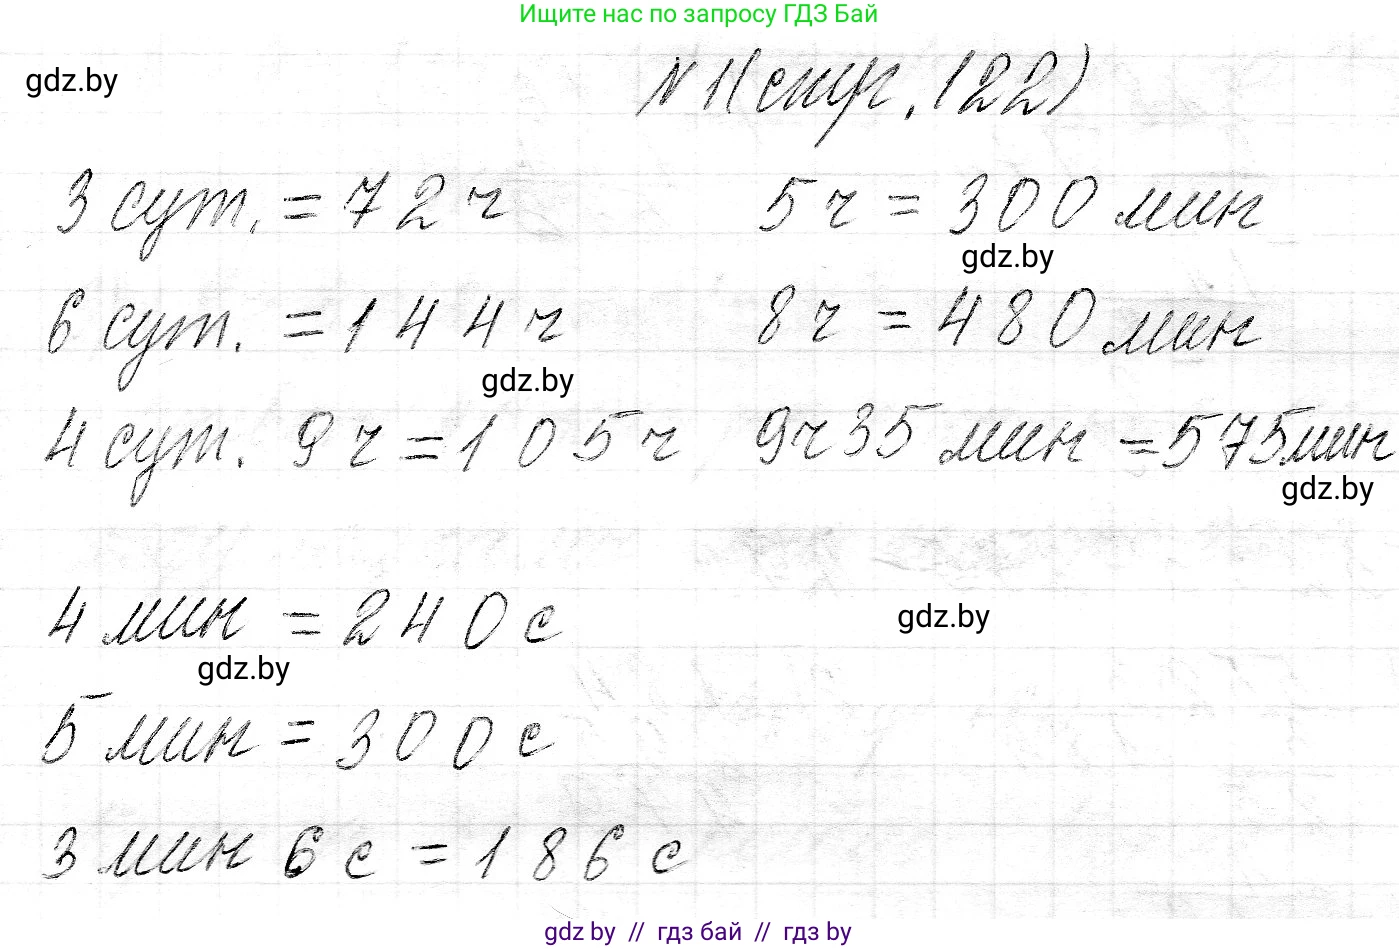 Ищите нас по запросу ГДЗ Бай
gdz.by
№1(стр. 122)
3 сут. = 72 ч
5 ч = 300 мин
gdz.by
6 сут. = 144 ч
8 ч = 480 мин
gdz.by
4 сут. 9 ч = 105 ч
9 ч 35 мин = 575 мин
gdz.by
4 мин = 240 с
gdz.by
gdz.by
5 мин = 300 с
3 мин 6 с = 186 с
gdz by // гдз бай // гдз by